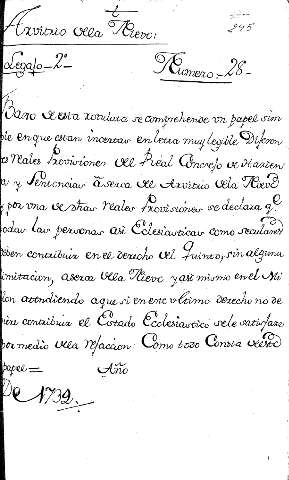 t
245
Arvitrio de la Nieve:
Legajo - 2º
Numero - 28 -
Bajo de esta rotulata se comprehende un papel sim
ple en que estan incertas en letra muy legible Diferen
tes Reales Provisiones del Real Concejo de Hazien
da y Sentencias acerca del Arvitrio de la Nieve
y por una de dhas Reales Provisiones se declara qe
todas las personas asi Eclesiasticas como seculares
deven contribuir en el derecho del Quinto, sin alguna
limitacion, acerca de la Nieve y asi mismo en el Mi
llon atendiendo a que si en este ultimo derecho no de
viere contribuir el Estado Eclesiastico se le satisfaze
por medio de la refaccion: Como todo Consta de dho
papel = Año
De 1732.